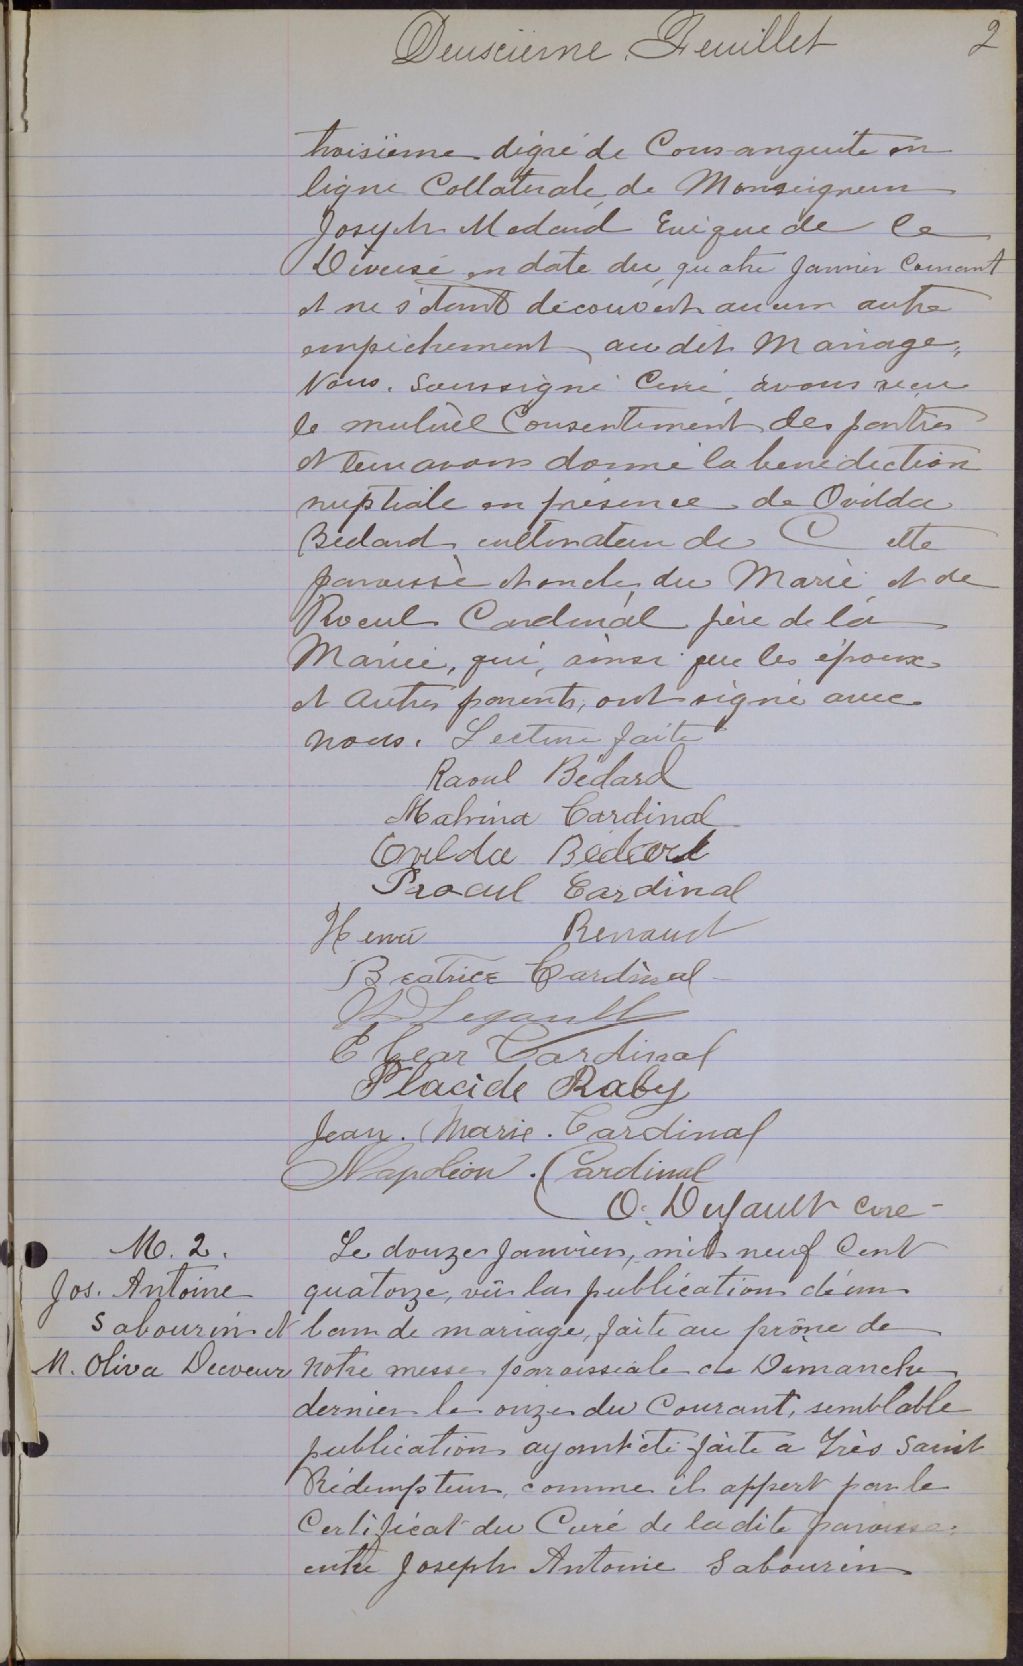 Deuxcième Feuillet 2
troisième dégré de Consanguité en
ligne Collaterale, de Monseigneur
Joseph Medard Evêque de ce
Diocèse en date du quatre Janvier Courant
et ne s'étant découvert aucun autre
empêchement au dit Mariage,
Nous. Soussigné Curé, avons reçu
le mutuel Consentiment des parties
et leur avons donné la bénédiction
nuptiale en présence de Ovilda
Bédard cultivateur de Cette
paroisse et oncle, du Marié et de
Raoul Cardinal père de la
Mariée, qui, ainsi que les époux
et autres parents, ont signé avec
nous. Lecture faite
Raoul Bédard
Malvina Cardinal
Ovilda Bédard
Raoul Cardinal
Henri Renaud
Beatrice Cardinal
Legault
Elzear Cardinal
Placide Raby
Jean. Marie. Cardinal
Napoléon. Cardinal
O. Dufault Curé
M. 2.
Jos. Antoine
Sabourin et
M. Oliva Decoeur
Le douze Janvier, mil neuf Cent
quatorze, vû la publication d'un
ban de mariage, faite au prône de
Notre messe paroissiale de Dimanche
dernier le onze du Courant, semblable
publication ayant été faite a Très Saint
Rédempteur, comme il appert par le
Certificat du Curé de la dite paroisse.
entre Joseph Antoine Sabourin